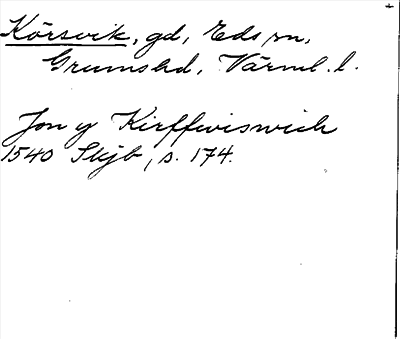 Körsvik, gd, Eds sn,
Grums hd, Värml. l.
Jon y Kirffwiswich
1540 Skjb, s. 174.